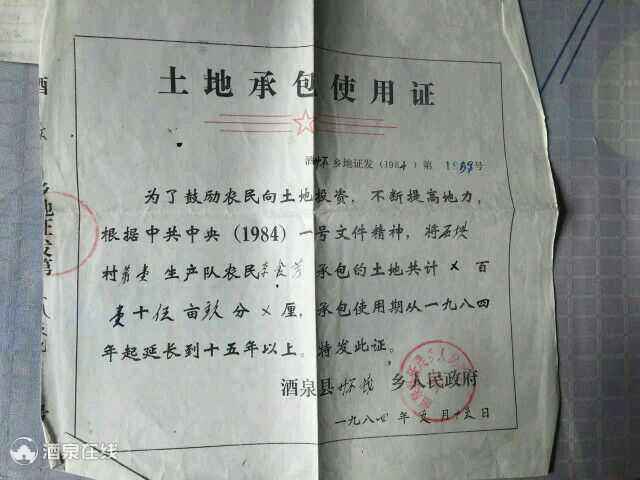 土地承包使用证
酒怀乡地证发（1984）第 1059号
为了鼓励农民向土地投资，不断提高地力，
根据中共中央（1984）一号文件精神，将石洪
村第叁生产队农民 承包的土地共计 × 百
壹十伍亩玖分 × 厘，承包使用期从一九八四
年起延长到十五年以上。特发此证。
酒泉县怀茂乡人民政府
一九八四年 月十五日
酒
乡地证发第
号
酒泉在线